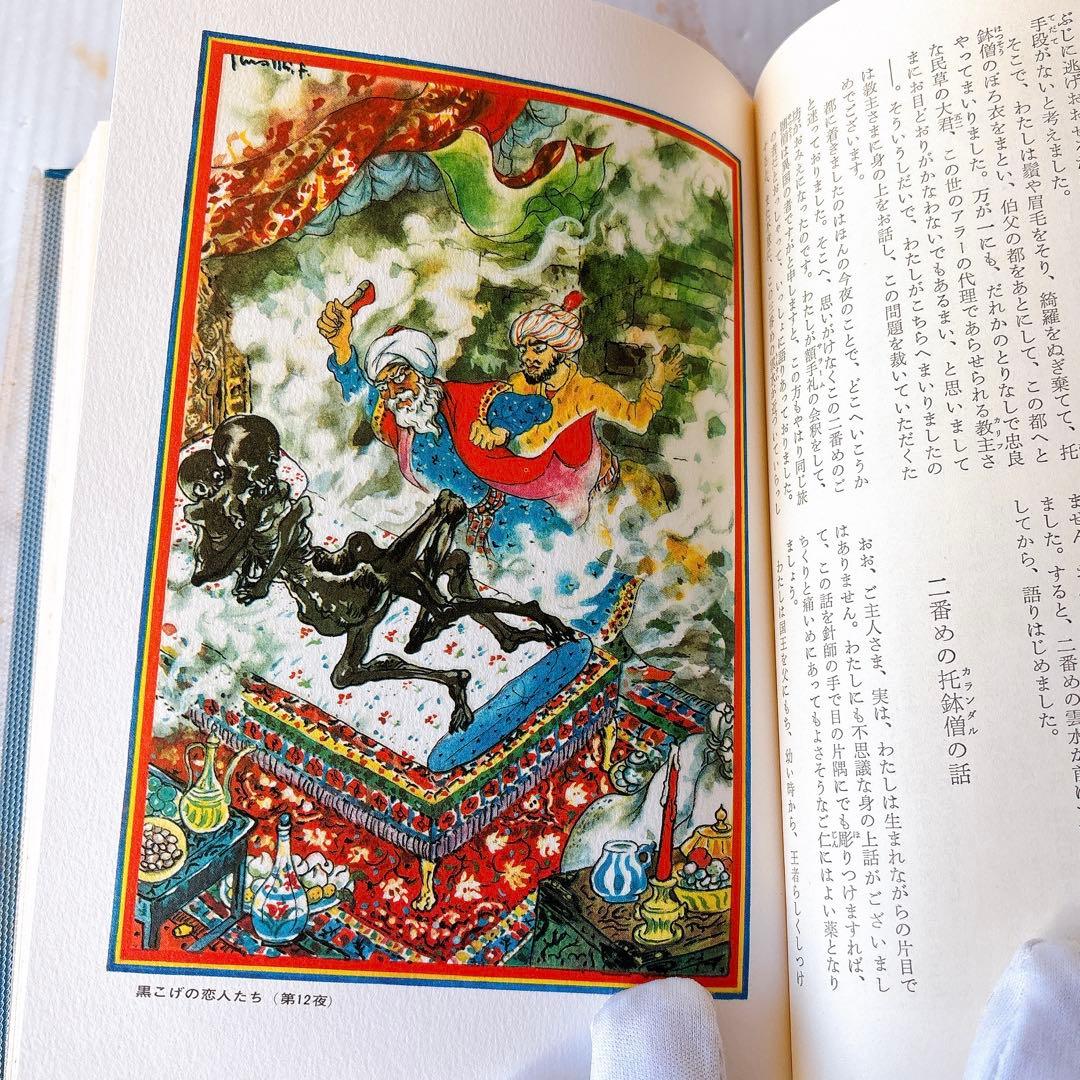 ぶじに逃げおおせ
手段がないと考えました。
そこで、わたしは鬚や眉毛をそり、綺羅をぬぎ棄てて、托
鉢僧のぼろ衣をまとい、伯父の都をあとにして、この都へと
やってまいりました。万が一にも、だれかのとりなしで忠良
な民草の大君、この世のアラーの代理であらせられる教主さ
まにお目どおりがかなわないでもあるまい、と思いまして
――。そういうしだいで、わたしがこちらへまいりましたの
は教主さまに身の上をお話し、この問題を裁いていただくた
めでございます。
都に着きましたのはほんの今夜のことで、どこへいこうか
と迷っておりました。そこへ、思いがけなくこの二番めのご
僧がおみえになったのです。わたしが額手礼の会釈をして、
の者ですがと申しますと、この方もやはり同じ旅
の者だとおっしゃって、いっしょに語りあっておりました。
ません
ました。すると、二番めの雲水が首
してから、語りはじめました。
二番めの托鉢僧の話
おお、ご主人さま、実は、わたしは生まれながらの片目で
はありません。わたしにも不思議な身の上話がございまし
て、この話を針師の手で目の片隅にでも彫りつけますれば、
ちくりと痛いめにあってもよさそうなと仁にはよい薬となり
ましょう。
わたしは国王を父にもち、幼い時から、王者らしくしつけ
黒こげの恋人たち（第12夜）